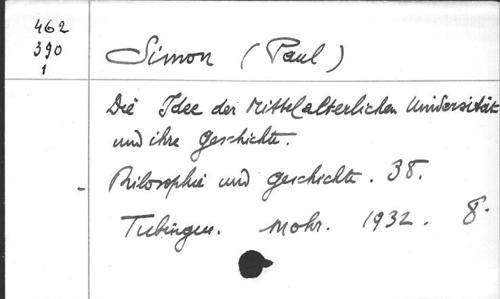 462
390
1
Simon (Paul)
Die Idee der Mittelalterlichen Universität
und ihre Geschichte.
Philosophie und Geschichte. 38.
Tubingen. Mohr. 1932. 8.